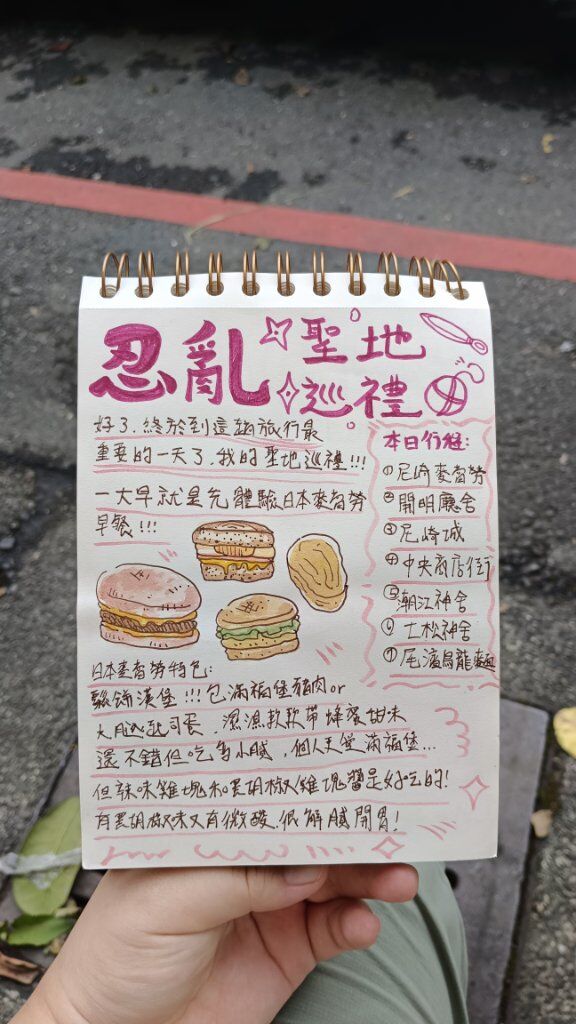 忍亂
聖地
巡禮
好了,終於到這趟旅行最
重要的一天了,我的聖地巡禮!!!
一大早就是先體驗日本麥當勞
早餐!!!
本日行程:
①尼崎麥當勞
②開明廳舍
③尼崎城
④中央商店街
⑤潮江神舍
⑥七松神舍
⑦尾濱烏龍麵
日本麥當勞特色:
鬆餅漢堡!!!包滿福堡豬肉or
火腿起司蛋,濕濕軟軟帶蜂蜜甜味
還不錯但吃多小膩,個人更愛滿福堡...
但辣味雞塊和黑胡椒雞塊醬是好吃的!
有黑胡椒味又有微酸,很解膩開胃!